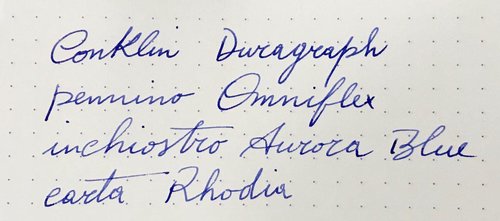 Conklin Duragraph
pennino Omniflex
inchiostro Aurora Blue
carta Rhodia